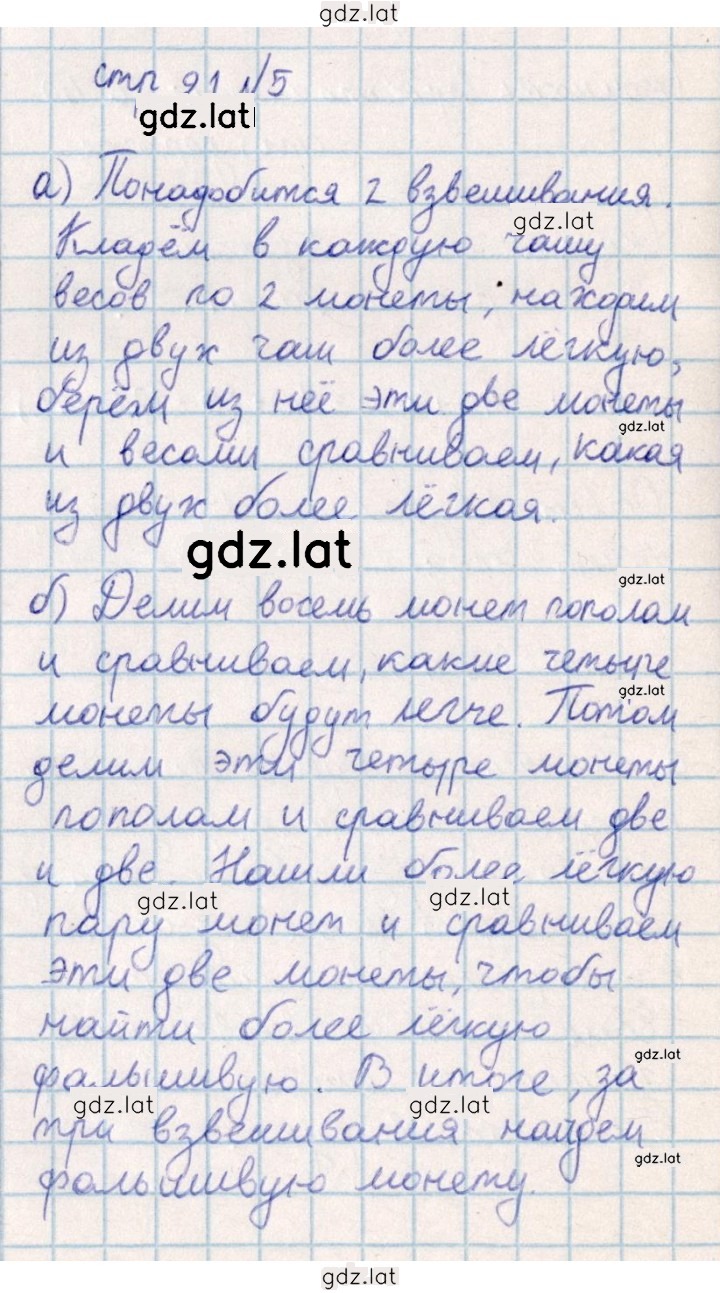 gdz.lat
стр 91 №5
gdz.lat
а) Понадобится 2 взвешивания.
gdz.lat
Кладём в каждую чашу
весов по 2 монеты, находим
из двух чаш более лёгкую,
берём из неё эти две монеты
gdz.lat
и весами сравниваем, какая
из двух более лёгкая.
gdz.lat
gdz.lat
б) Делим восемь монет пополам
и сравниваем, какие четыре
gdz.lat
монеты будут легче. Потом
делим эти четыре монеты
пополам и сравниваем две
и две. Нашли более лёгкую
gdz.lat gdz.lat
пару монет и сравниваем
эти две монеты, чтобы
найти более лёгкую
gdz.lat
фальшивую. В итоге, за
gdz.lat gdz.lat
три взвешивания найдем
gdz.lat
фальшивую монету.
gdz.lat